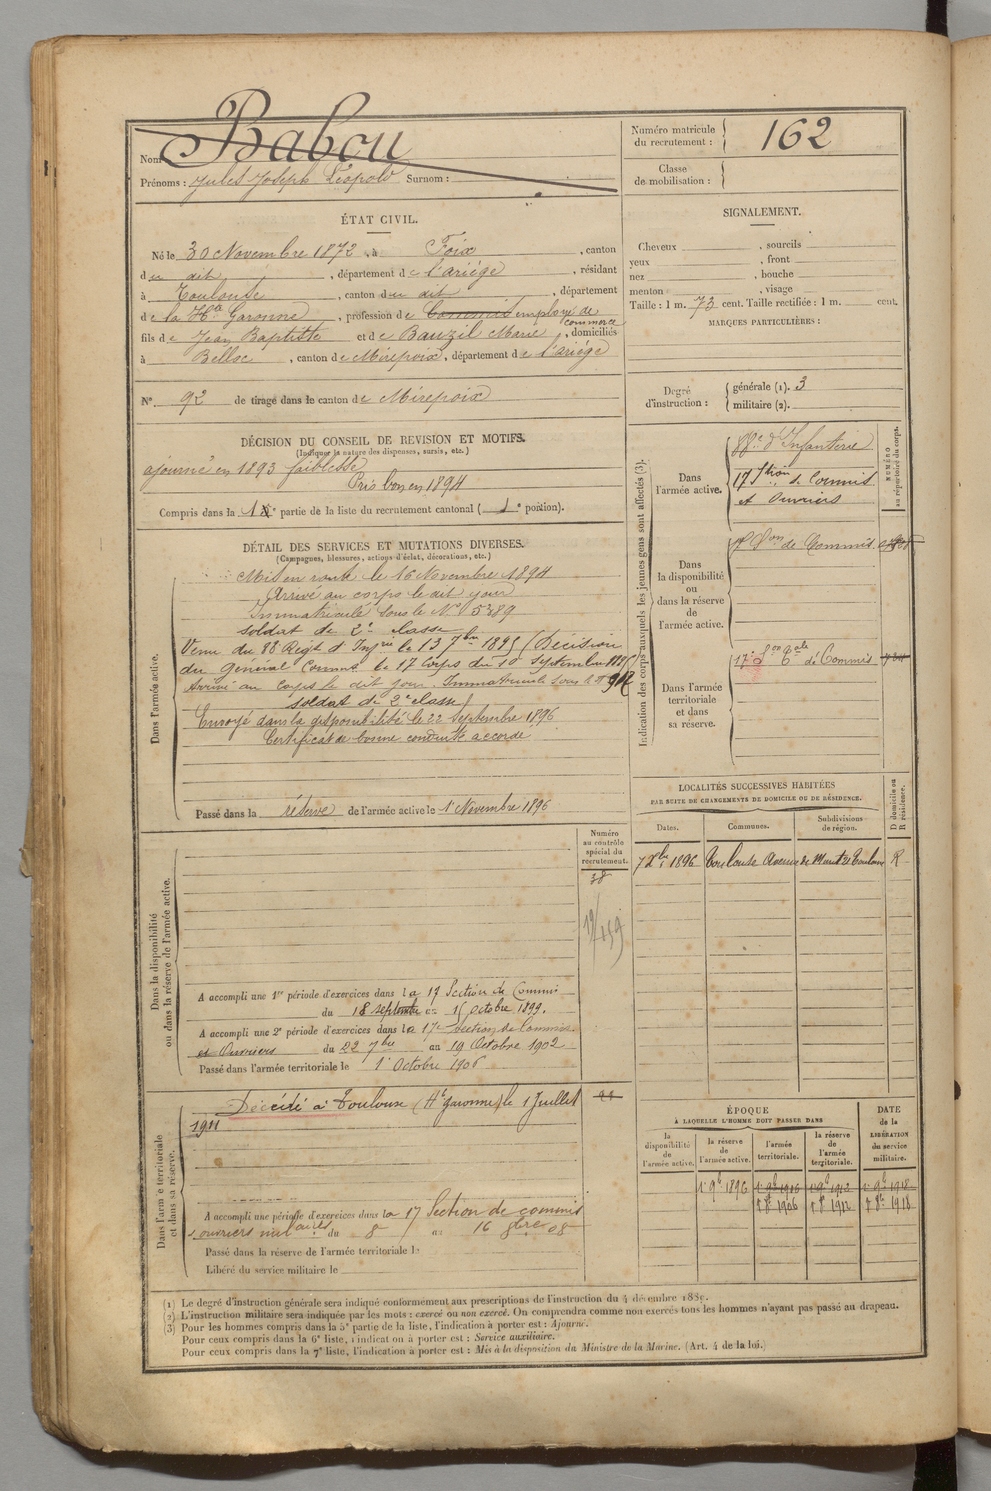 Nom Babou
Prénoms : Jules Joseph Léopold Surnom :
Numéro matricule du recrutement : 162
Classe de mobilisation :
ÉTAT CIVIL.
Né le 30 Novembre 1872, à Foix, canton
du dit, département de l'ariége, résidant
à Toulouse, canton du dit, département
de la Hte Garonne, profession de Commis employé de commerce
fils de Jean Baptiste et de Bauzil Marie, domiciliés
à Belloc, canton de Mirepoix, département de l'ariége
N° 92 de tirage dans le canton de Mirepoix
SIGNALEMENT.
Cheveux , sourcils
yeux , front
nez , bouche
menton , visage
Taille : 1 m. 73 cent. Taille rectifiée : 1 m. cent.
MARQUES PARTICULIÈRES :
Degré d'instruction : générale (1). 3
militaire (2).
DÉCISION DU CONSEIL DE REVISION ET MOTIFS.
(Indiquer la nature des dispenses, sursis, etc.)
ajourné en 1893 faiblesse
Pris bon en 1894
Compris dans la 1e partie de la liste du recrutement cantonal ( 1e portion).
DÉTAIL DES SERVICES ET MUTATIONS DIVERSES.
(Campagnes, blessures, actions d'éclat, décorations, etc.)
Dans l'armée active.
Mis en route le 16 Novembre 1894
Arrivé au corps le dit jour
Immatriculé sous le N° 5389
soldat de 2e classe
Venu du 88 Régt d'Infrie le 13 7bre 1895 (Décision
du général Commt le 17 Corps du 10 septembre 1895
Arrivé au corps le dit jour Immatriculé sous le n°
soldat de 2e classe
Envoyé dans la disponibilité le 22 septembre 1896
Certificat de bonne conduite accordé
Passé dans la réserve de l'armée active le 1 Novembre 1896
Indication des corps auxquels les jeunes gens sont affectés (3).
NUMÉRO au répertoire du corps.
Dans l'armée active.
88e d'Infanterie
17 Stion de Commis
et Ouvriers
Dans la disponibilité ou dans la réserve de l'armée active.
de Commis
Dans l'armée territoriale et dans sa réserve.
17e Son de Commis
LOCALITÉS SUCCESSIVES HABITÉES
PAR SUITE DE CHANGEMENTS DE DOMICILE OU DE RÉSIDENCE.
D domicile ou R résidence.
Dates. Communes. Subdivisions de région.
7 Xbre 1896 Toulouse Avenue de Muret 31 Toulouse R
Dans la disponibilité ou dans la réserve de l'armée active.
Numéro au contrôle spécial du recrutement.
38
A accompli une 1re période d'exercices dans la 17 Section de Commis
du 18 septembre au 15 octobre 1899.
A accompli une 2e période d'exercices dans la 17e Section de Commis
et Ouvriers du 22 7bre au 19 Octobre 1902
Passé dans l'armée territoriale le 1 Octobre 1906
Dans l'armée territoriale et dans sa réserve.
Décédé à Toulouse (Hte garonne) le 1 Juillet
1911
A accompli une période d'exercices dans la 17 Section de commis
ouvriers militaires du 8 au 16 8bre 08
Passé dans la réserve de l'armée territoriale le
Libéré du service militaire le
ÉPOQUE
À LAQUELLE L'HOMME DOIT PASSER DANS
DATE de la LIBÉRATION du service militaire.
la disponibilité de l'armée active. la réserve de l'armée active. l'armée territoriale. la réserve de l'armée territoriale.
1 9b 1896 1 9b 1906 1 9b 1912 1 9b 1918
1 8b 1906 1 8b 1912 1 8b 1918
(1) Le degré d'instruction générale sera indiqué conformément aux prescriptions de l'instruction du 4 décembre 1889.
(2) L'instruction militaire sera indiquée par les mots : exercé ou non exercé. On comprendra comme non exercés tous les hommes n'ayant pas passé au drapeau.
(3) Pour les hommes compris dans la 5e partie de la liste, l'indication à porter est : Ajourné.
Pour ceux compris dans la 6e liste, l'indication à porter est : Service auxiliaire.
Pour ceux compris dans la 7e liste, l'indication à porter est : Mis à la disposition du Ministre de la Marine. (Art. 4 de la loi.)